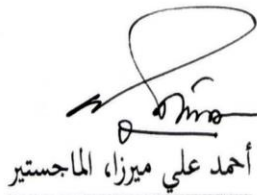 أحمد علي ميرزا، الماجستير